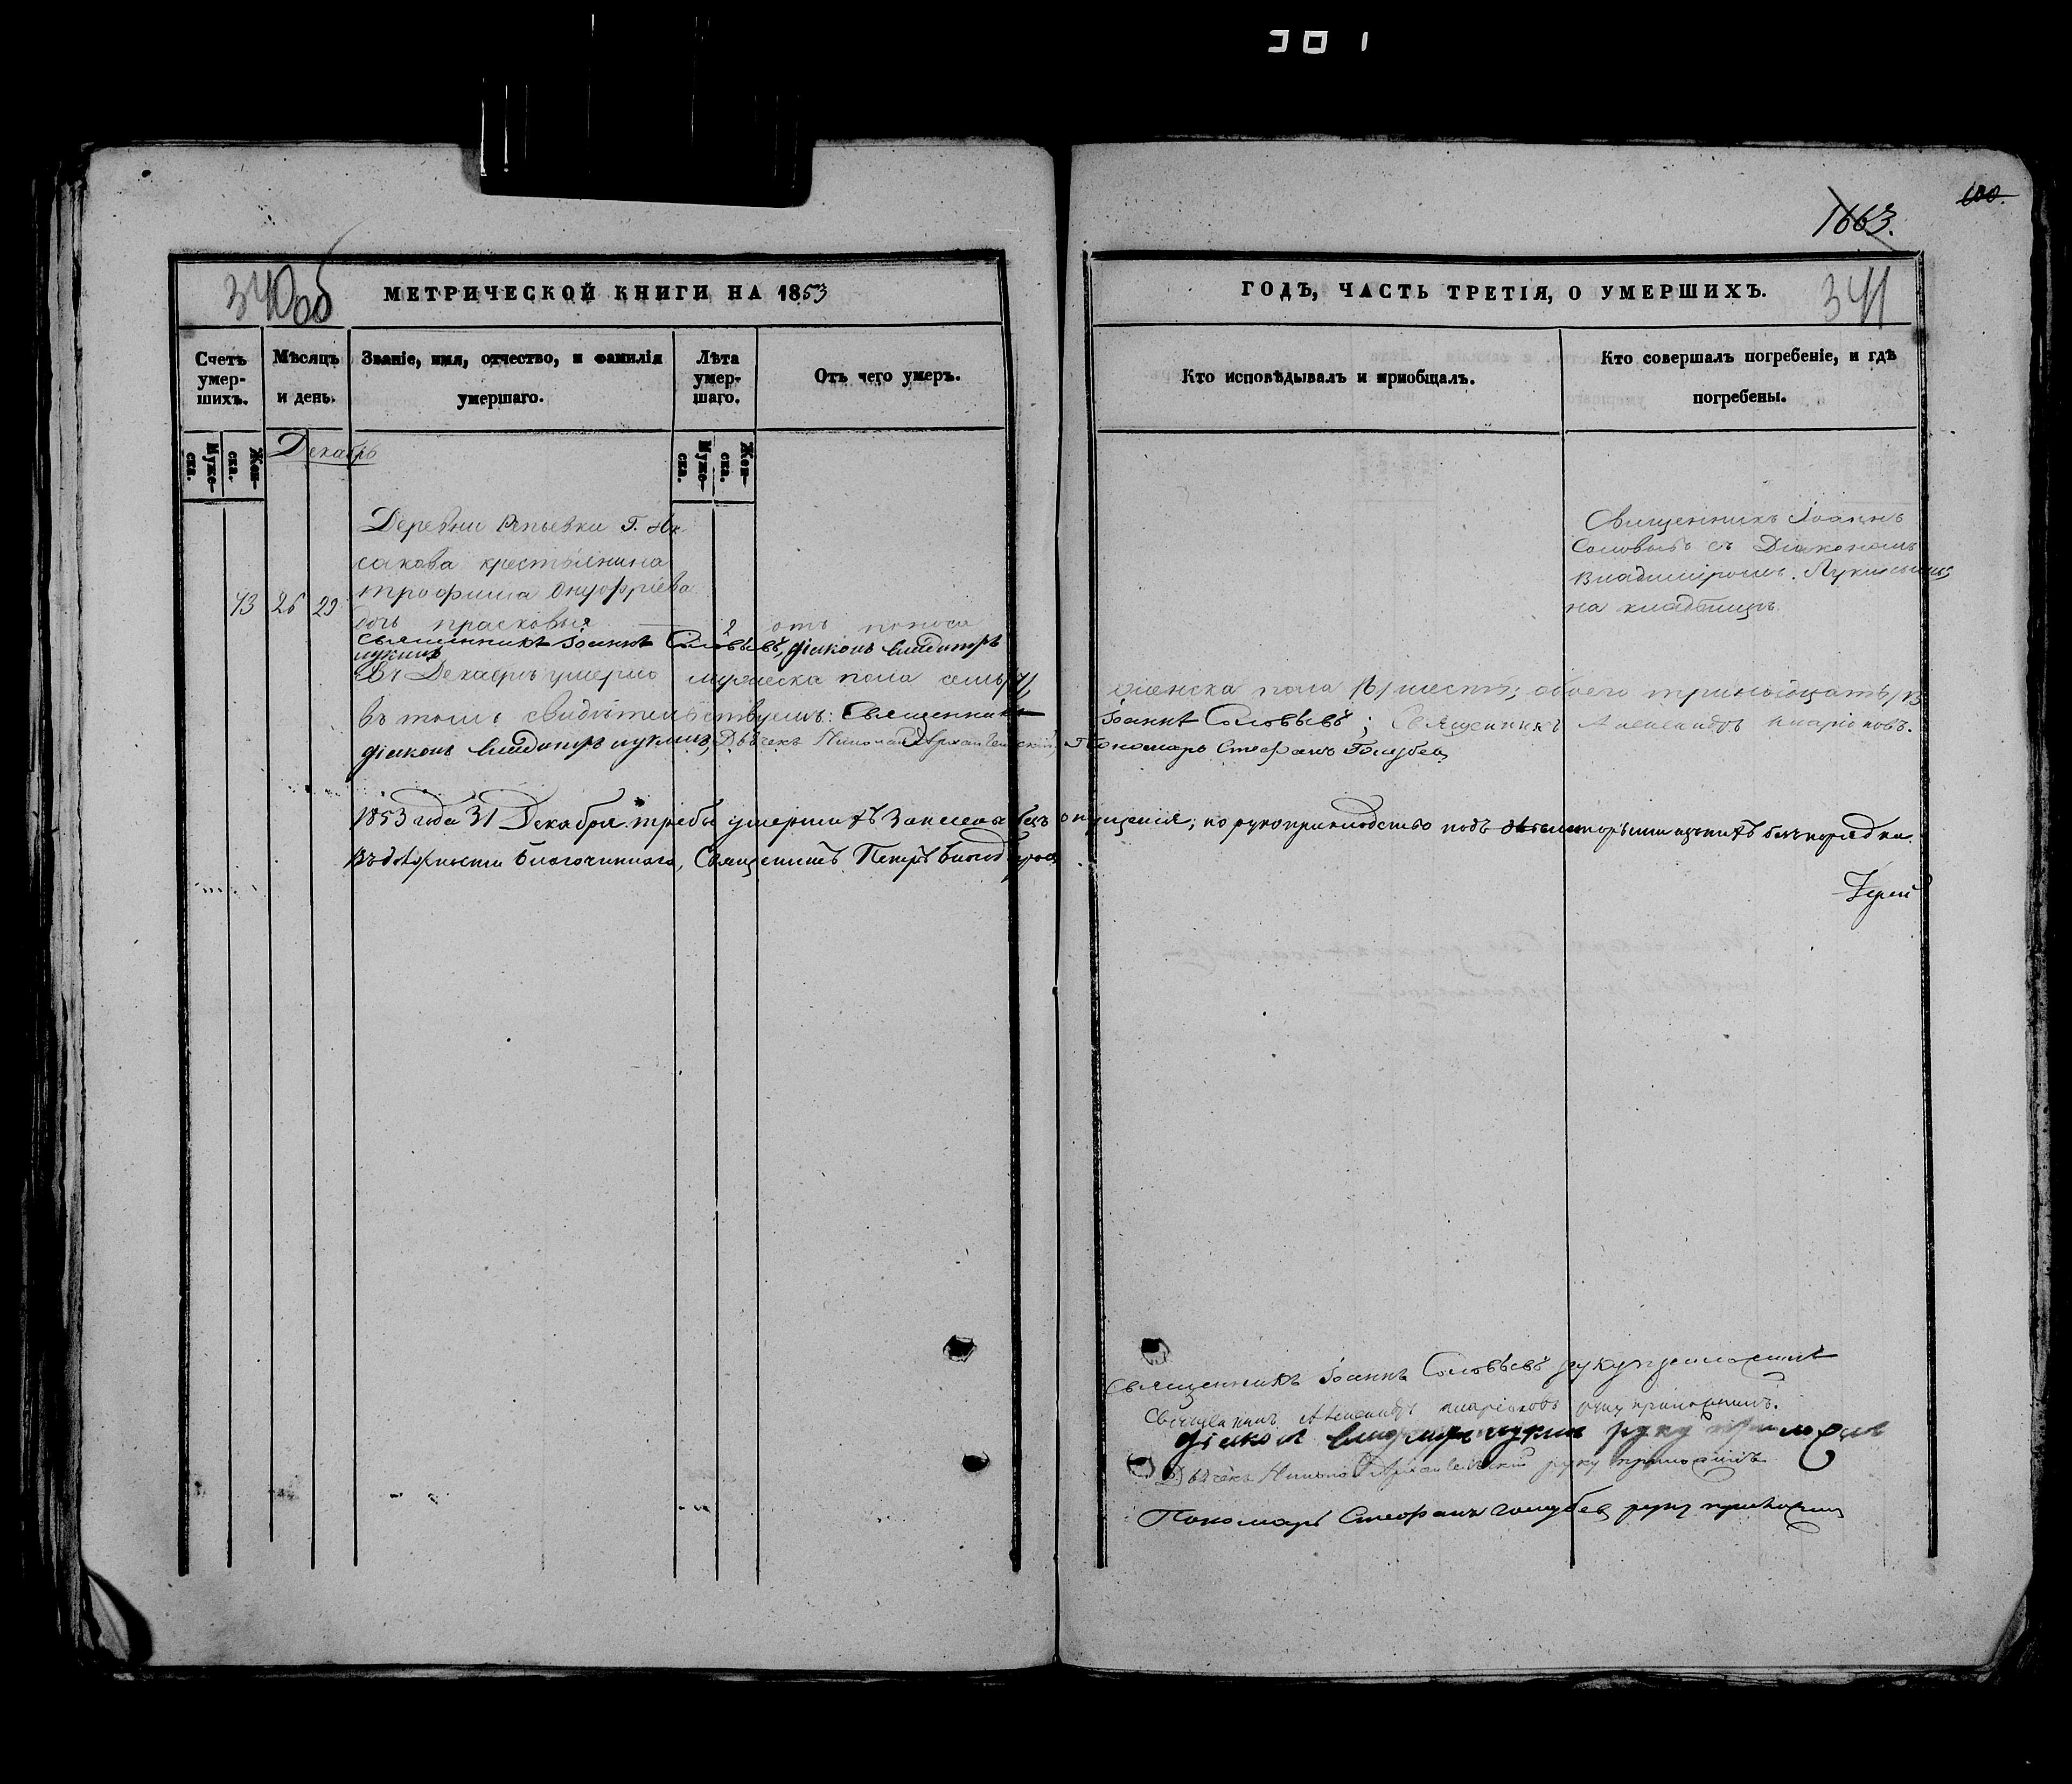 1663.
100.
340об
МЕТРИЧЕСКОЙ КНИГИ НА 1853
ГОДЪ, ЧАСТЬ ТРЕТІЯ, О УМЕРШИХЪ.
341
Счетъ умер-шихъ.
Мѣсяцъ и день.
Званіе, имя, отчество, и фамилія умершаго.
Лѣта умер-шаго.
Отъ чего умеръ.
Кто исповѣдывалъ и пріобщалъ.
Кто совершалъ погребеніе, и гдѣ погребены.
Муже-ска.
Жен-ска.
Декабрь
Муже-ска.
Жен-ска.
Деревни Репьевки Г. Ак-
сакова крестьянина
Трофима Онуфріева
73 26 29 дочь Прасковья 2 отъ поноса
Священникъ Іоаннъ
Соловьевъ съ Діакономъ
Владиміромъ Лукинымъ
на кладбищѣ
Священникъ Іоаннъ Соловьевъ, Діаконъ Владиміръ
Лукинъ
Въ Декабрѣ умерло мужеска пола семь /7/ женска пола /6/ шесть; обоего тринадцать /13
въ томъ свидѣтельствуемъ: Священникъ Іоаннъ Соловьевъ; Священникъ Александръ
Діаконъ Владиміръ Лукинъ, Дьячекъ Николай Архангельскій, Пономарь Стефанъ Голубев
1853 года 31 Декабря требы умершихъ записаны безъ опущенія; но рукоприкладство подъ
Въ должности благочиннаго, Священникъ Петръ
Іерей
Священникъ Іоаннъ Соловьевъ руку приложилъ
Священникъ Александръ руку приложилъ.
Діаконъ Владиміръ Лукинъ руку приложилъ
Дьячекъ Николай Архангельскій руку приложилъ
Пономарь Стефанъ Голубев руку приложилъ